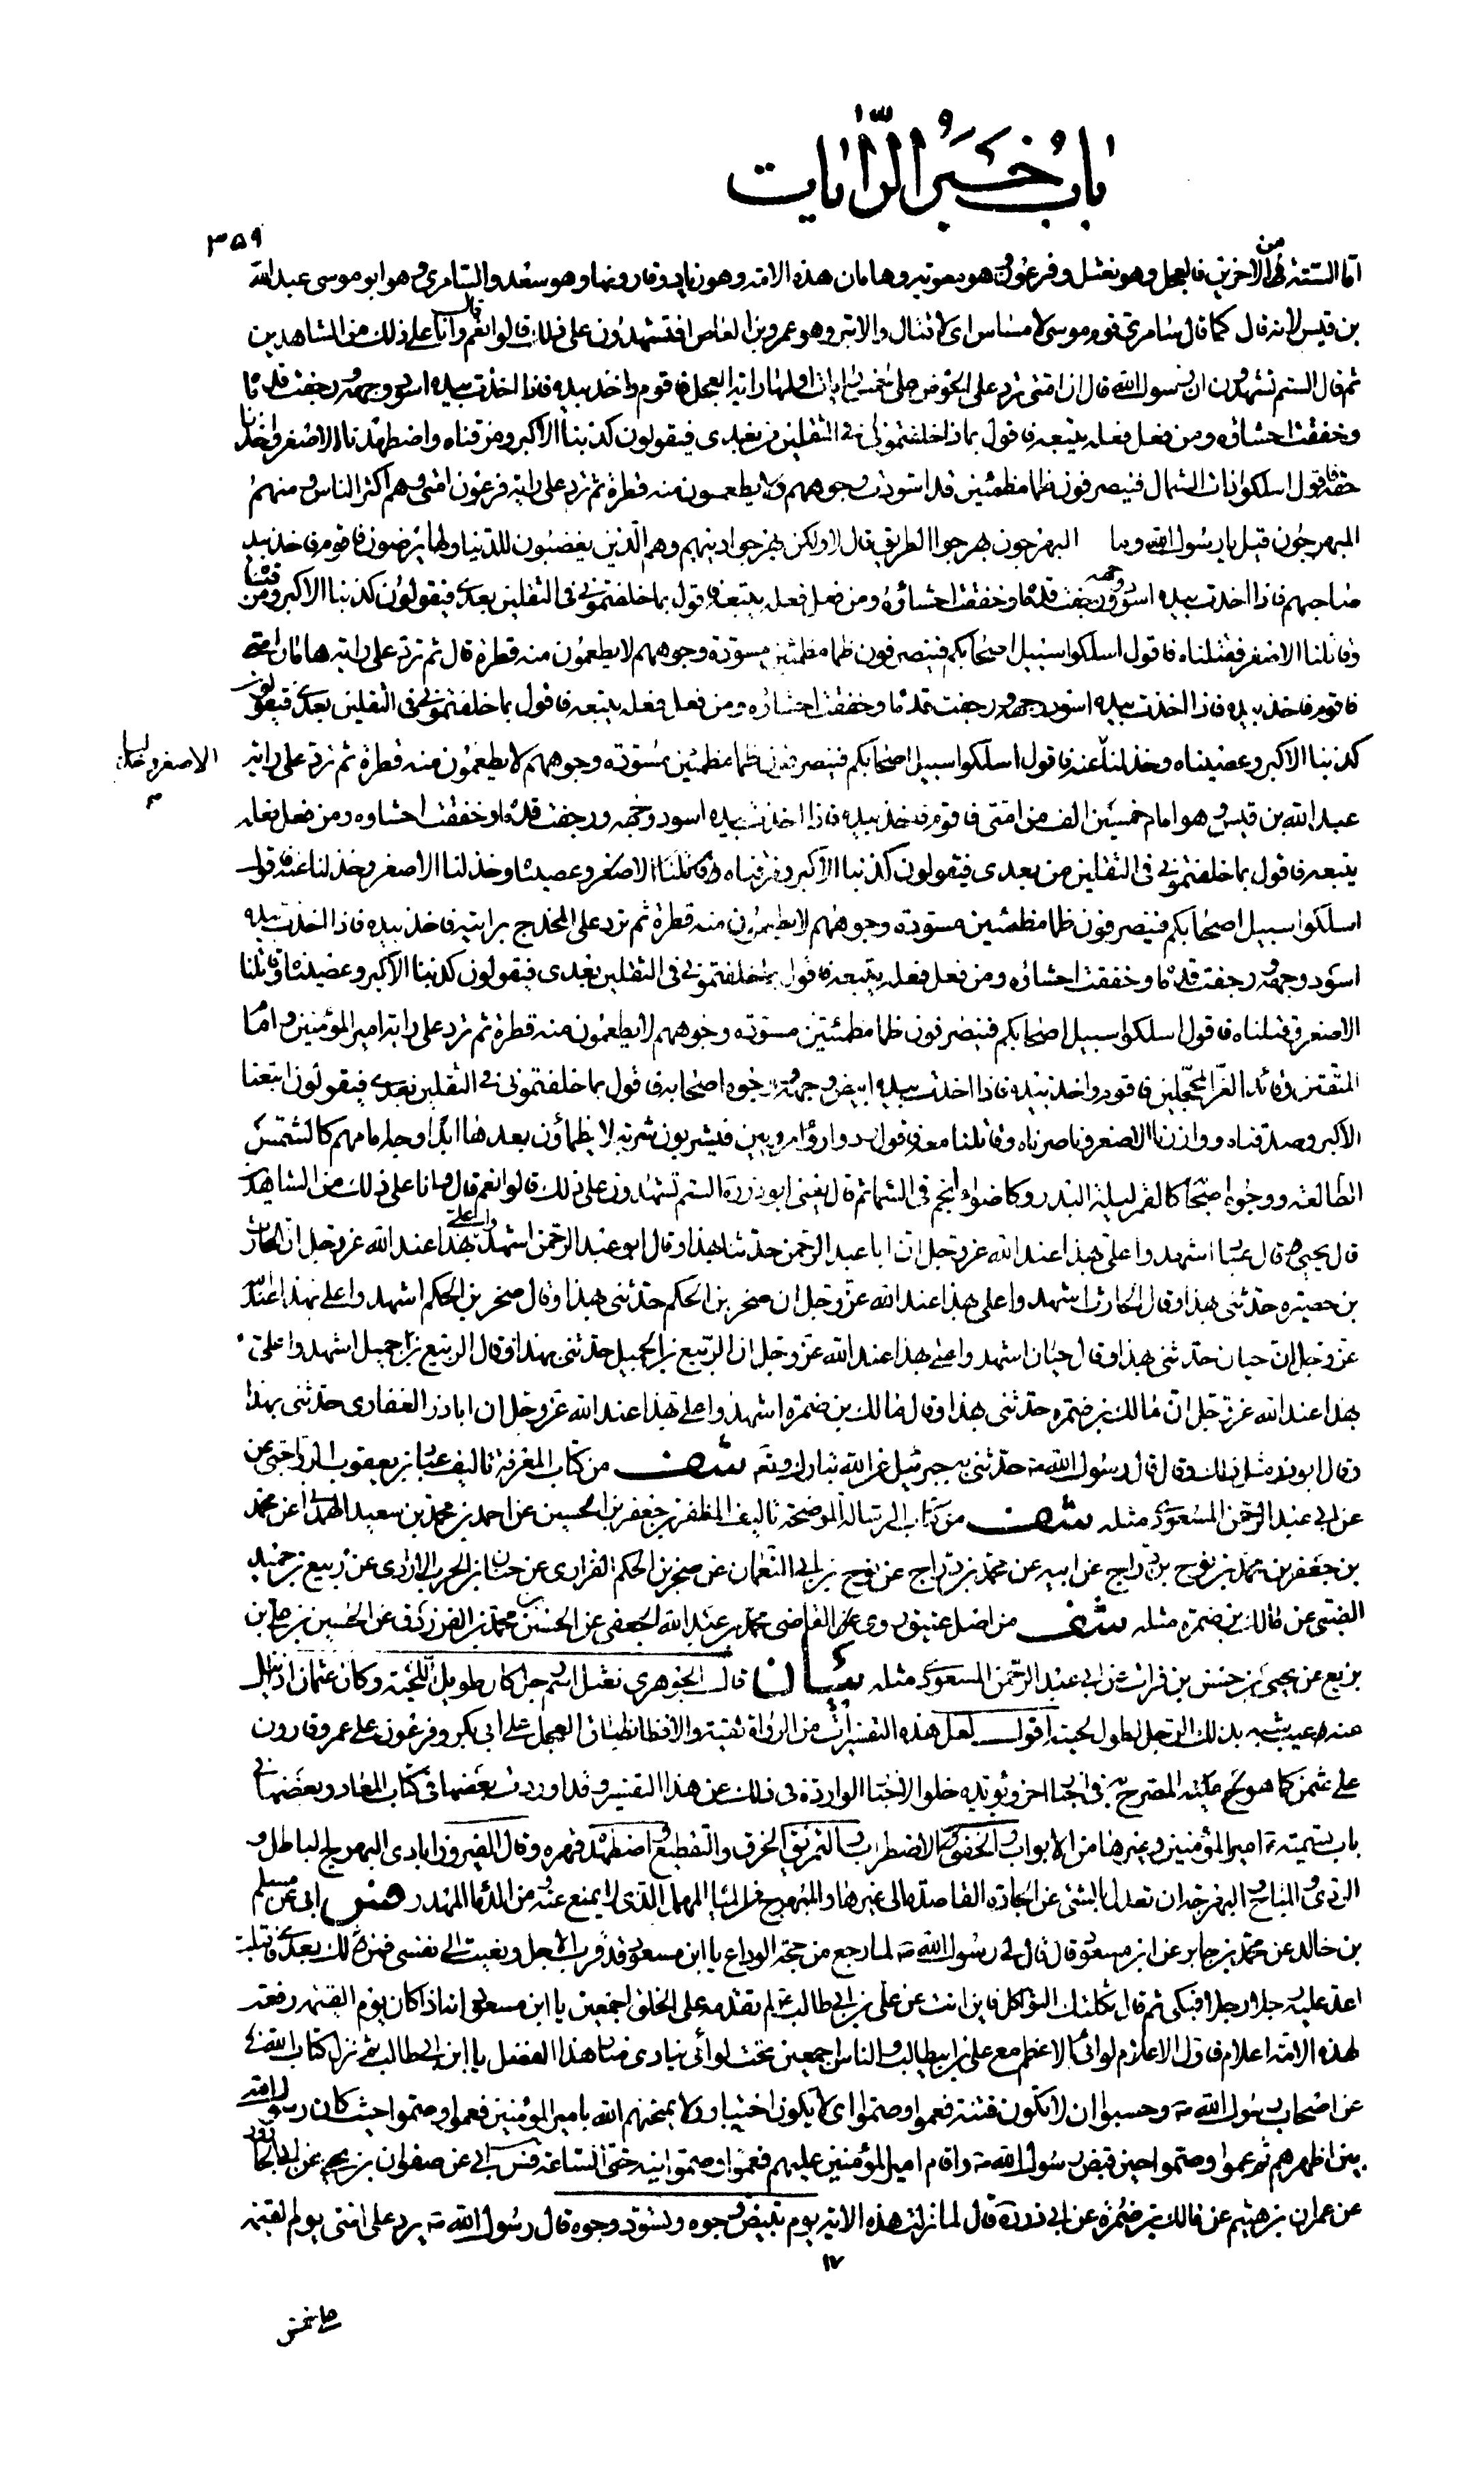 باب خبر الرايات
٣٥٩
اما الستة من الاخرين فالعجل وهو نعثل وفرعون وهو معوية وهامان هذه الامة وهو زياد وقارونها وهو سعد والسامري وهو ابو موسى عبد الله
بن قيس لانه قال كما قال سامري قوم موسى لا مساس اي لا قتال والابتر وهو عمرو بن العاص افتشهدون على ذلك قالوا نعم قال وانا على ذلك من الشاهدين
ثم قال الستم تشهدون ان رسول الله قال ان امتي ترد على الحوض على خمس رايات اولها راية العجل فاقوم فاخذ بيده فاذا اخذت بيده اسود وجهه ورجفت قدماه
وخفقت احشاؤه ومن فعل فعله يتبعه فاقول بماذا خلفتموني في الثقلين من بعدي فيقولون كذبنا الاكبر ومزقناه واضطهدنا الاصغر واخذنا
حقه فاقول اسلكوا ذات الشمال فينصرفون ظماء مظمئين قد اسودت وجوههم ولا يطعمون منه قطرة ثم ترد على راية فرعون امتي وهم اكثر الناس ومنهم
المبهرجون قيل يا رسول الله وما المبهرجون بهرجوا الطريق قال لا ولكن بهرجوا دينهم وهم الذين يغضبون للدنيا ولها يرضون فاقوم فاخذ بيد
صاحبهم فاذا اخذت بيده اسود وجهه ورجفت قدماه وخفقت احشاؤه ومن فعل فعله يتبعه فاقول بما خلفتموني في الثقلين بعدي فيقولون كذبنا الاكبر ومزقناه
وقاتلنا الاصغر فقتلناه فاقول اسلكوا سبيل اصحابكم فينصرفون ظماء مظمئين مسودة وجوههم لا يطعمون منه قطرة قال ثم ترد على راية هامان امتي
فاقوم فاخذ بيده فاذا اخذت بيده اسود وجهه ورجفت قدماه وخفقت احشاؤه ومن فعل فعله يتبعه فاقول بما خلفتموني في الثقلين بعدي فيقولون
كذبنا الاكبر وعصيناه وخذلنا عنه فاقول اسلكوا سبيل اصحابكم فينصرفون ظماء مظمئين مسودة وجوههم لا يطعمون منه قطرة ثم ترد على راية
الاصغر وخذلنا
عبد الله بن قيس وهو امام خمسين الف من امتي فاقوم فاخذ بيده فاذا اخذت بيده اسود وجهه ورجفت قدماه وخفقت احشاوه ومن فعل فعله
يتبعه فاقول بما خلفتموني في الثقلين من بعدي فيقولون كذبنا الاكبر ومزقناه وقاتلنا الاصغر وعصيناه وخذلنا الاصغر وخذلنا عنه فاقول
اسلكوا سبيل اصحابكم فينصرفون ظماء مظمئين مسودة وجوههم لا يطعمون منه قطرة ثم ترد على المخدج برايته فاخذ بيده فاذا اخذت بيده
اسود وجهه ورجفت قدماه وخفقت احشاؤه ومن فعل فعله يتبعه فاقول بما خلفتموني في الثقلين بعدي فيقولون كذبنا الاكبر وعصيناه وقاتلنا
الاصغر فقتلناه فاقول اسلكوا سبيل اصحابكم فينصرفون ظماء مظمئين مسودة وجوههم لا يطعمون منه قطرة ثم ترد على راية امير المؤمنين وامام
المتقين وقائد الغر المحجلين فاقوم واخذ بيده فاذا اخذت بيده ابيض وجهه ووجوه اصحابه فاقول بما خلفتموني في الثقلين بعدي فيقولون اتبعنا
الاكبر وصدقناه ووازرنا الاصغر وناصرناه وقاتلنا معه فاقول ردوا رواء مرويين فيشربون شربة لا يظماؤن بعدها ابدا وجه امامهم كالشمس
الطالعة ووجوه اصحابه كالقمر ليلة البدر وكاضواء نجم في السماء ثم قال يعني ابو ذر ره الستم تشهدون على ذلك قالوا نعم قال وانا على ذلك من الشاهدين
قال يحيى قال عباد اشهدوا علي بهذا عند الله عز وجل ان ابا عبد الرحمن حدثنا بهذا وقال ابو عبد الرحمن اشهدوا علي بهذا عند الله عز وجل ان الحارث
بن حصيرة حدثني بهذا وقال الحارث اشهدوا علي بهذا عند الله عز وجل ان صخر بن الحكم حدثني بهذا وقال صخر بن الحكم اشهدوا علي بهذا عند الله
عز وجل ان حيان حدثني بهذا وقال حيان اشهدوا علي بهذا عند الله عز وجل ان الربيع بن الجميل حدثني بهذا وقال الربيع بن جميل اشهدوا علي
بهذا عند الله عز وجل ان مالك بن ضمرة حدثني بهذا وقال مالك بن ضمرة اشهدوا علي بهذا عند الله عز وجل ان ابا ذر الغفاري حدثني بهذا
وقال ابو ذر مثل ذلك وقال قال رسول الله ص حدثني به جبرئيل عن الله تبارك وتعالى شف من كتاب المعرفة تاليف عباد بن يعقوب الرواجني عن
عن ابي عبد الرحمن المسعودي مثله شف من كتاب الرسالة الموضحة تاليف المظفر بن جعفر بن الحسين عن احمد بن محمد بن سعيد الهمداني عن محمد
بن جعفر بن محمد بن نوح بن دراج عن ابيه عن محمد بن دراج عن نوح بن ابي النعمان عن صخر بن الحكم الفزاري عن حنان بن الحرب الازدي عن ربيع بن حميد
الضبي عن مالك بن ضمرة مثله شف من اصل عتيق روي عن القاضي محمد بن عبد الله الجعفي عن الحسين بن محمد بن الفرزدق عن الحسين بن علي بن
بزيع عن يحيى بن حسن بن فرات عن ابي عبد الرحمن المسعودي مثله بيان قال الجوهري نعثل اسم رجل كان طويل اللحية وكان عثمان اذا نيل
منه وعيب شبه بذلك الرجل لطول لحيته اقول لعل هذه التفسيرات من الرواة تقية والا فانطباق العجل على ابي بكر وفرعون على عمر وقارون
على عثمن كما هو المصرح به في اخبار اخر ويؤيده خلو الاخبار الواردة في ذلك عن هذا التفسير وقد اوردت بعضها في كتاب المعاد وبعضها في
باب تسمية امير المؤمنين وغيرها من الابواب والخفوق الاضطراب والتمزيق الخرق والتقطيع واضطهده قهره وقال الفيروزابادي البهرج الباطل و
الردي والمباح والبهرجة ان تعدل بالشئ عن الجادة القاصدة الى غيرها والمبهرج من المياه المهمل الذي لا يمنع عنه ومن الدماء المهدر فس ابي عن مسلم
بن خالد عن محمد بن جابر عن ابن مسعود قال قال لي رسول الله ص لما رجع من حجة الوداع يا ابن مسعود قد قرب الاجل ونعيت الي نفسي فمن لك بعدي فاقبلت
اعد عليه رجلا رجلا فبكى ثم قال ثكلتك الثواكل فاين انت عن علي بن ابي طالب لم تقدمه على الخلق اجمعين يا ابن مسعود انه اذا كان يوم القيمة رفعت
لهذه الامة اعلام فاول الاعلام لوائي الاعظم مع علي بن ابي طالب والناس اجمعين تحت لوائي ينادي مناد هذا الفضل يا ابن ابي طالب ثم نزل كتاب الله
عن اصحاب رسول الله ص وحسبوا ان لا تكون فتنة فعموا وصموا اي لا يكون اختبار ولا يمتحنهم الله بامير المؤمنين فعموا وصموا حيث كان رسول الله
بين اظهرهم ثم عموا وصموا حين قبض رسول الله ص واقام امير المؤمنين عليهم فعموا وصموا فيه حتى الساعة فس ابي عن صفوان بن يحيى عن ابي الجارود
عن عمران بن هشيم عن مالك بن ضمرة عن ابي ذر ره قال لما نزلت هذه الاية يوم تبيض وجوه وتسود وجوه قال رسول الله ص يرد علي امتي يوم القيمة
١٧
على خمس